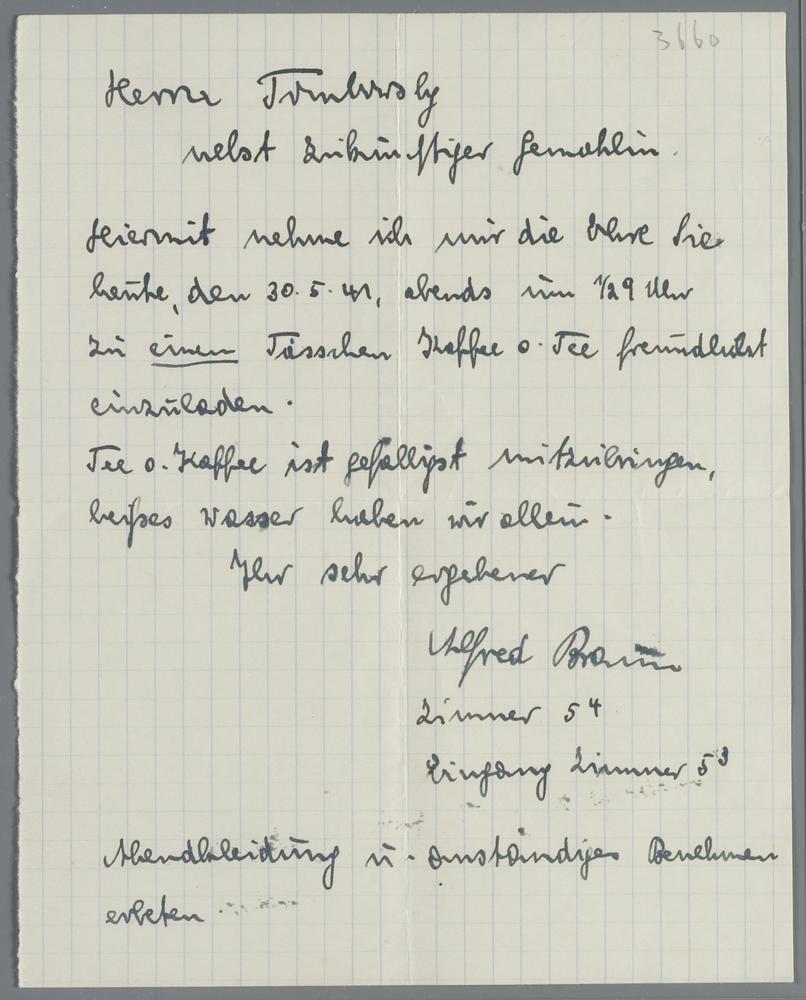 3660
Herrn
nebst zukünftiger Gemahlin.
Hiermit nehme ich mir die Ehre Sie
heute, den 30.5.41, abends um ½9 Uhr
zu einem Tässchen Kaffee o. Tee freundlichst
einzuladen.
Tee o. Kaffee ist gefälligst mitzubringen,
heißes Wasser haben wir allein.
Ihr sehr ergebener
Alfred Braun
Zimmer 54
Eingang Zimmer 53
Abendkleidung u. anständiges Benehmen
erbeten